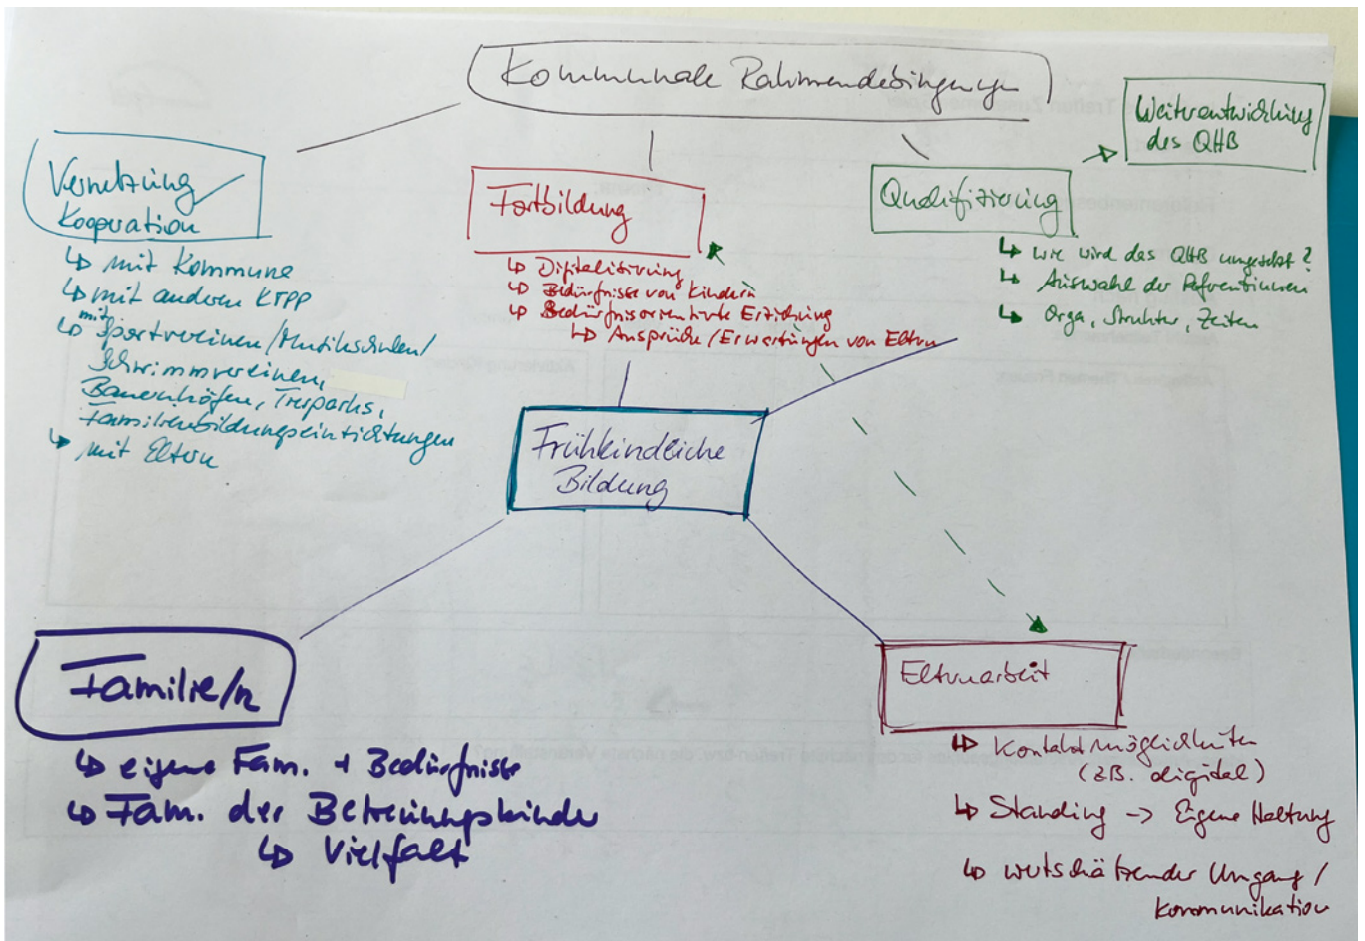 Kommunale Rahmenbedingungen
Weiterentwicklung
des QHB
Vernetzung
Kooperation
↳ mit Kommune
↳ mit anderen KTPP
↳ mit Sportvereinen/Musikschulen/
Schwimmvereinen,
Bauernhöfen, Tierparks,
Familienbildungseinrichtungen
↳ mit Eltern
Fortbildung
↳ Digitalisierung
↳ Bedürfnisse von Kindern
↳ Bedürfnisorientierte Erziehung
↳ Ansprüche/Erwartungen von Eltern
Qualifizierung
↳ wie wird das QHB umgesetzt?
↳ Auswahl der Referentinnen
↳ Orga, Struktur, Zeiten
Frühkindliche
Bildung
Familie/n
↳ eigene Fam. + Bedürfnisse
↳ Fam. der Betreuungskinder
↳ Vielfalt
Elternarbeit
↳ Kontaktmöglichkeiten
(zB. digital)
↳ Standing -> Eigene Haltung
↳ wertschätzender Umgang/
Kommunikation